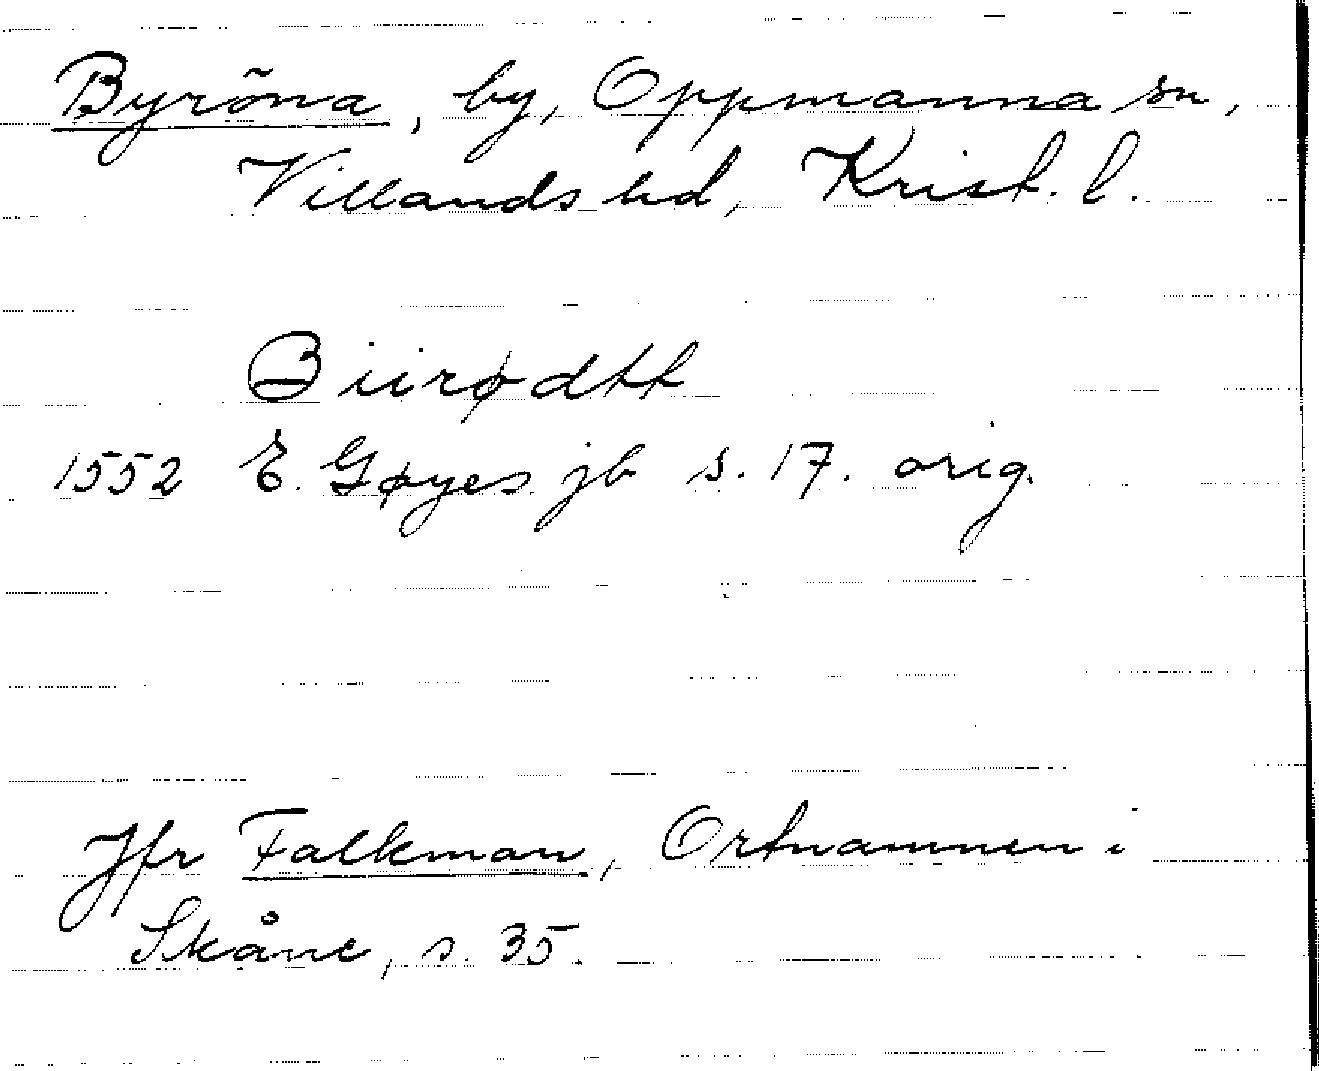 Byröna, by, Oppmanna sn,
Villands hd, Krist. l.
Biirødtt
1552 E. Gøyes jb s. 17. orig.
Jfr Falkman, Ortnamnen i
Skåne, s. 35.